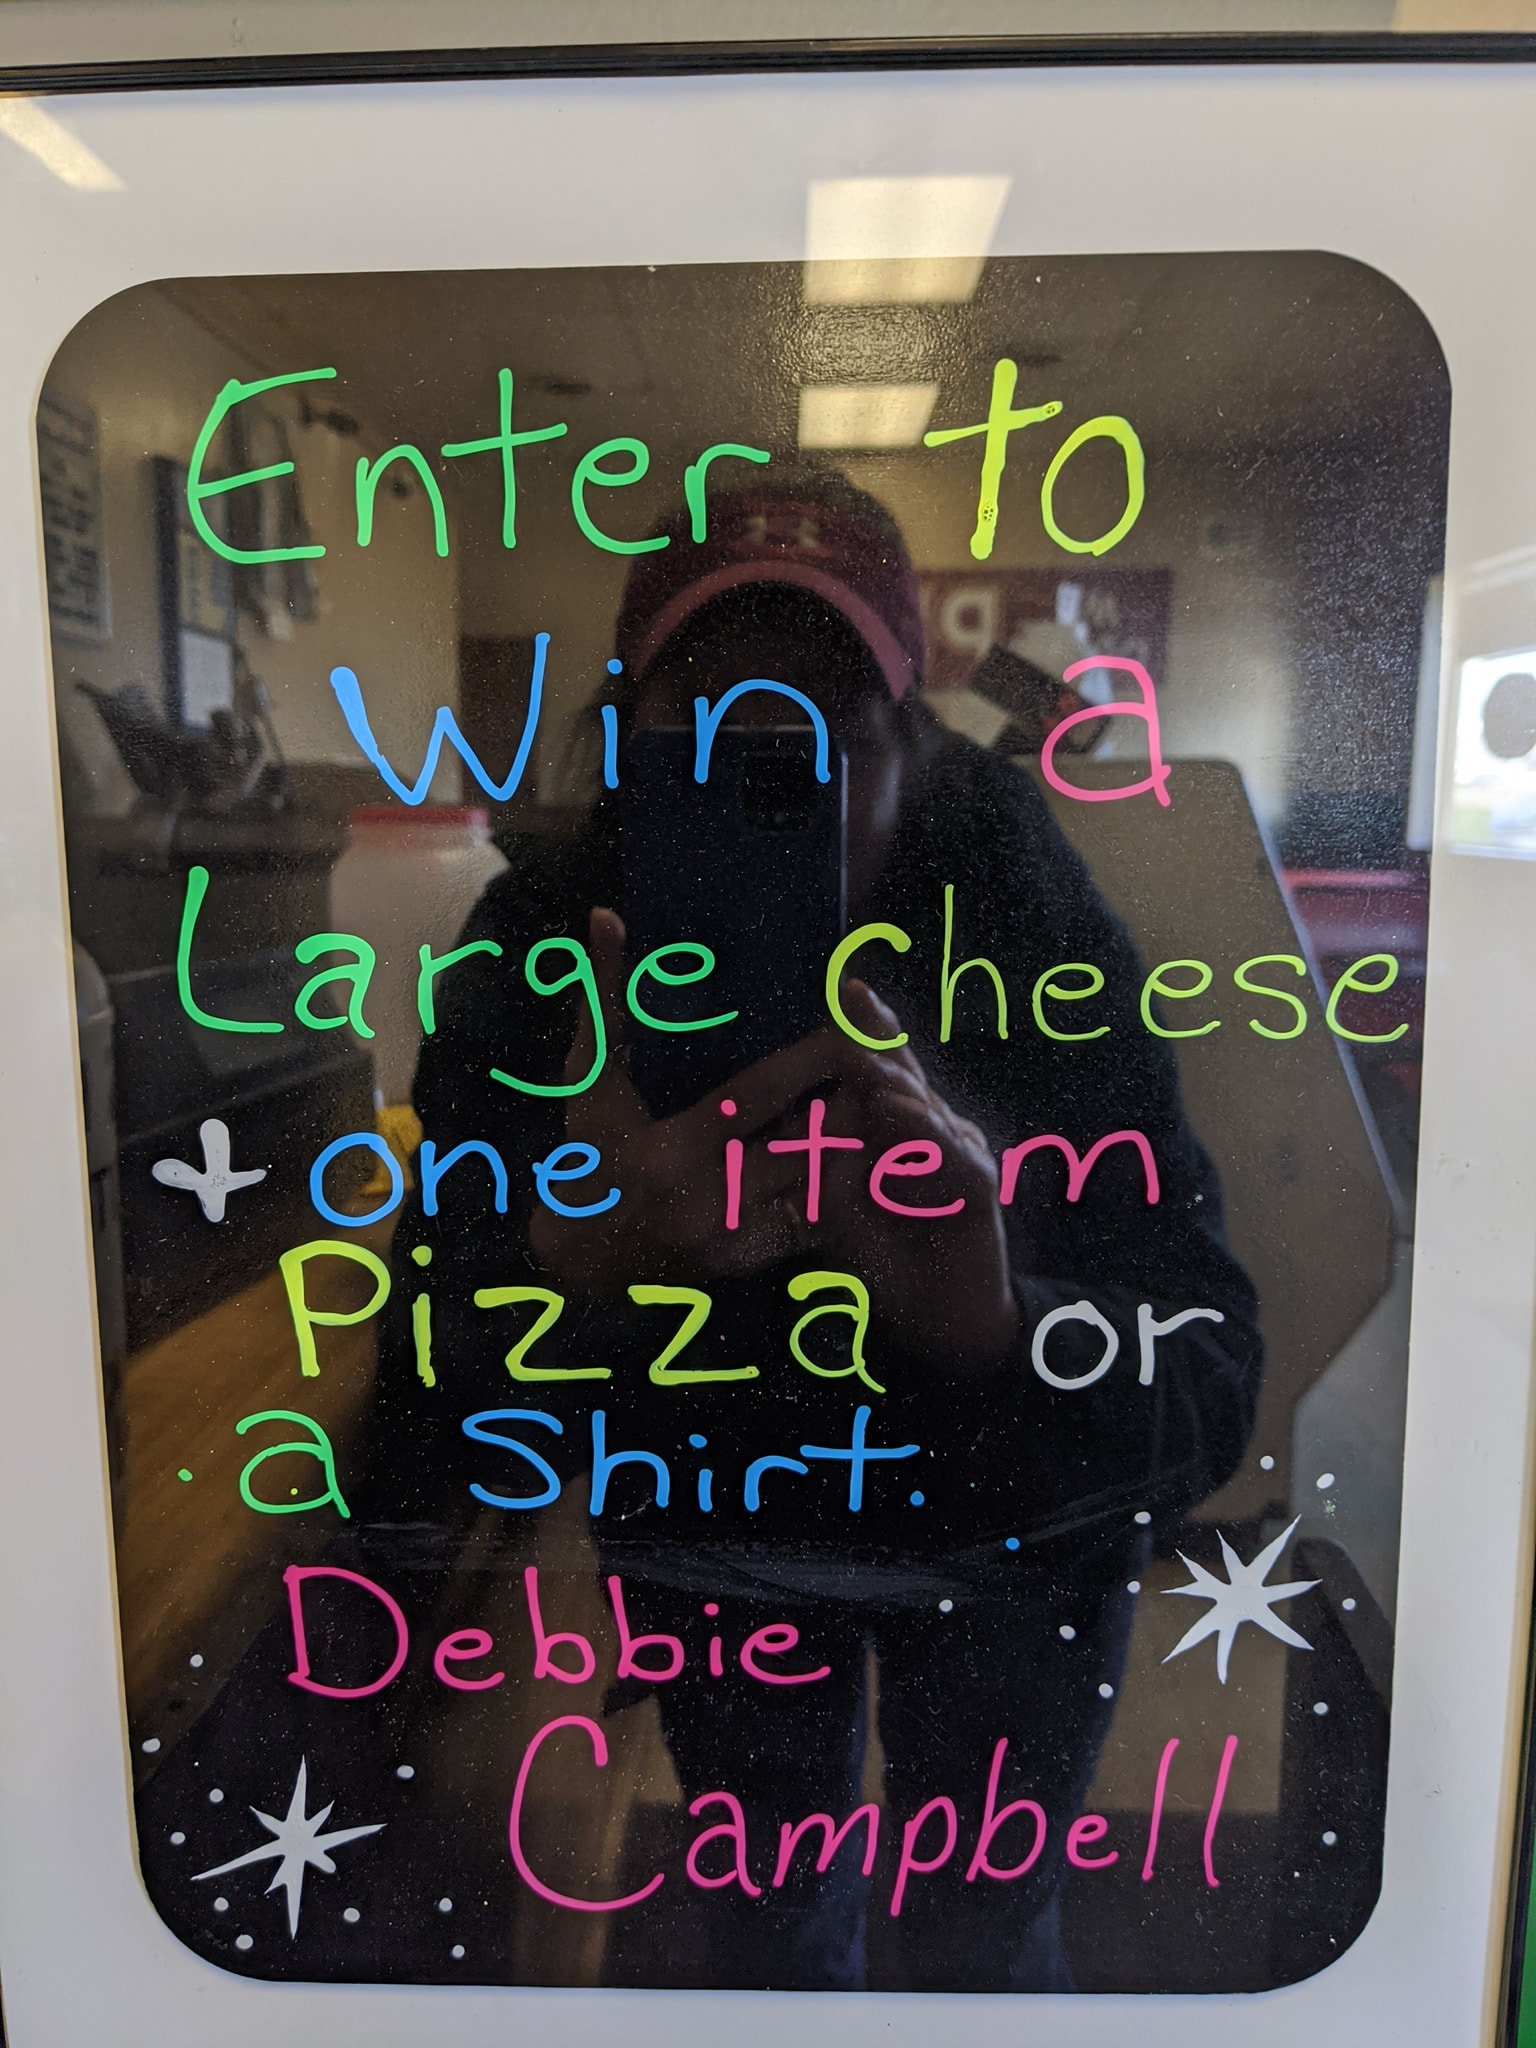 Enter to
Win a
Large cheese
+ one item
Pizza or
a Shirt.
Debbie
Campbell